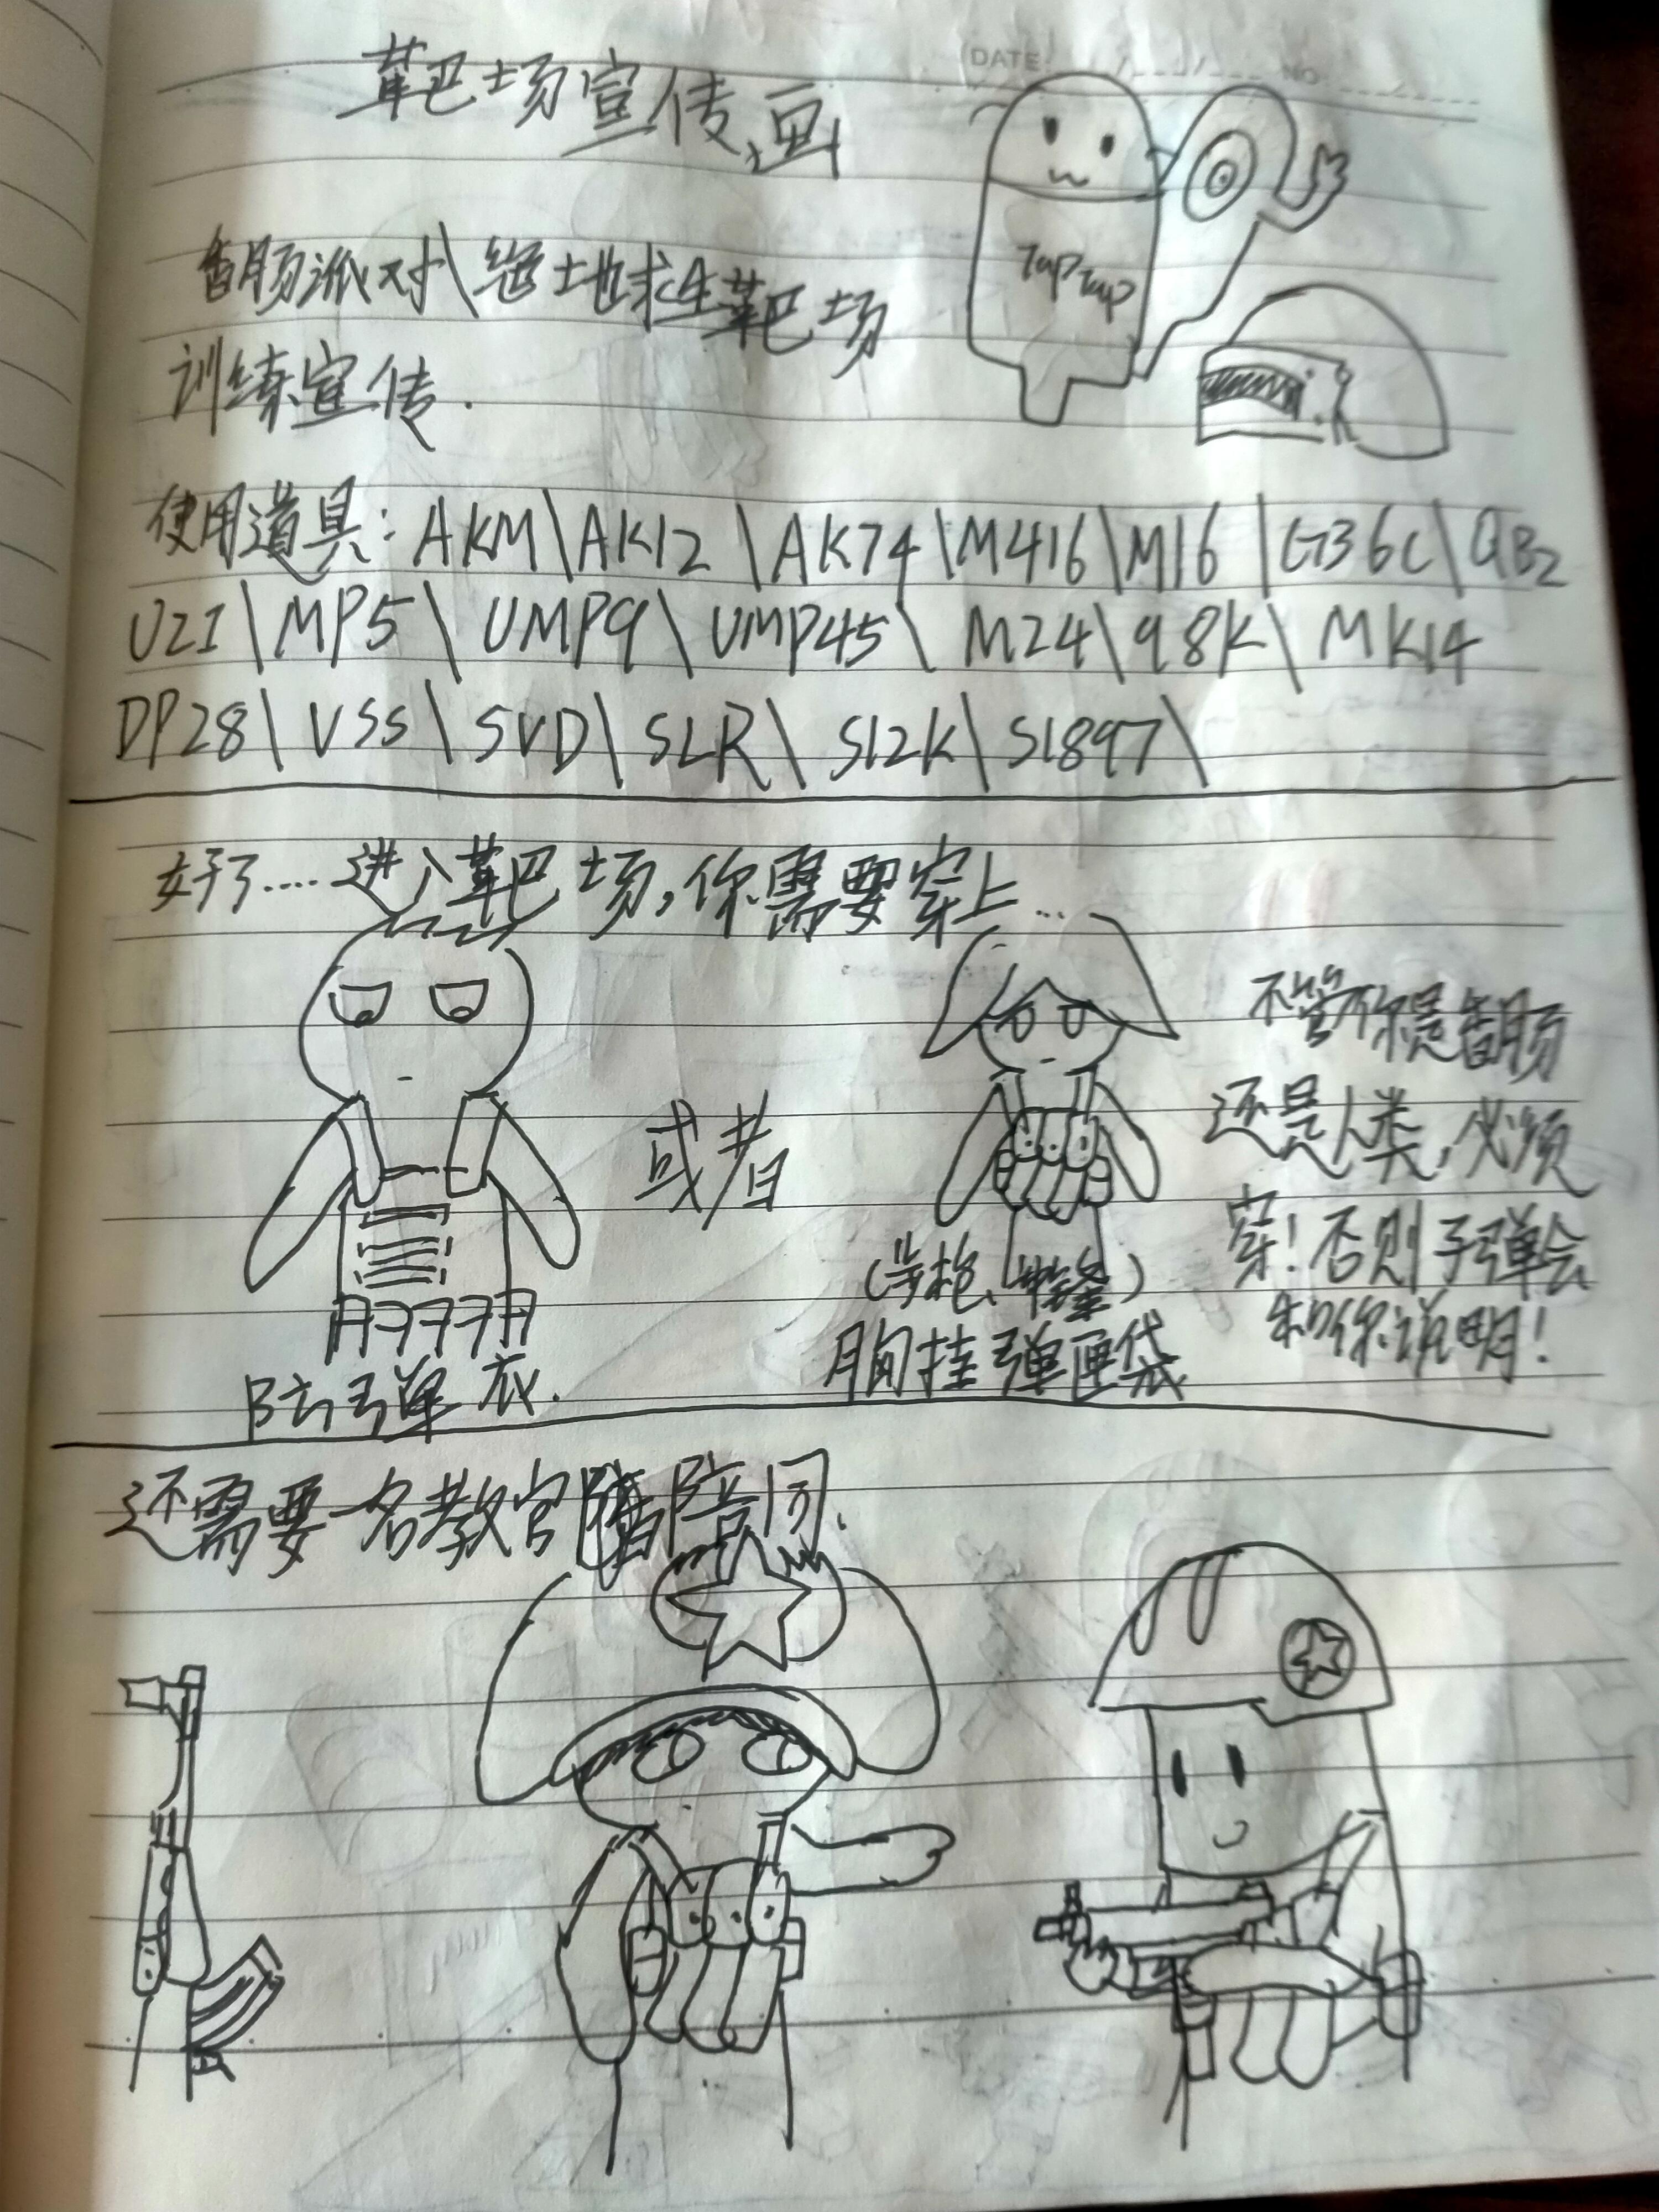 DATE NO
靶场宣传画
TapTap
香肠派对\绝地求生靶场
训练宣传.
使用道具:AKM\AK12\AK74\M416\M16\G36C\QBZ
UZI\MP5\UMP9\UMP45\M24\98K\MK14
DP28\VSS\SVD\SLR\S12K\S1897\
好了....进入靶场,你需要穿上...
不管你是香肠
还是人类,必须
穿!否则子弹会
和你说明!
或者
(步枪、冲锋)
胸挂弹匣袋
防弹衣.
还需要一名教官陪同.